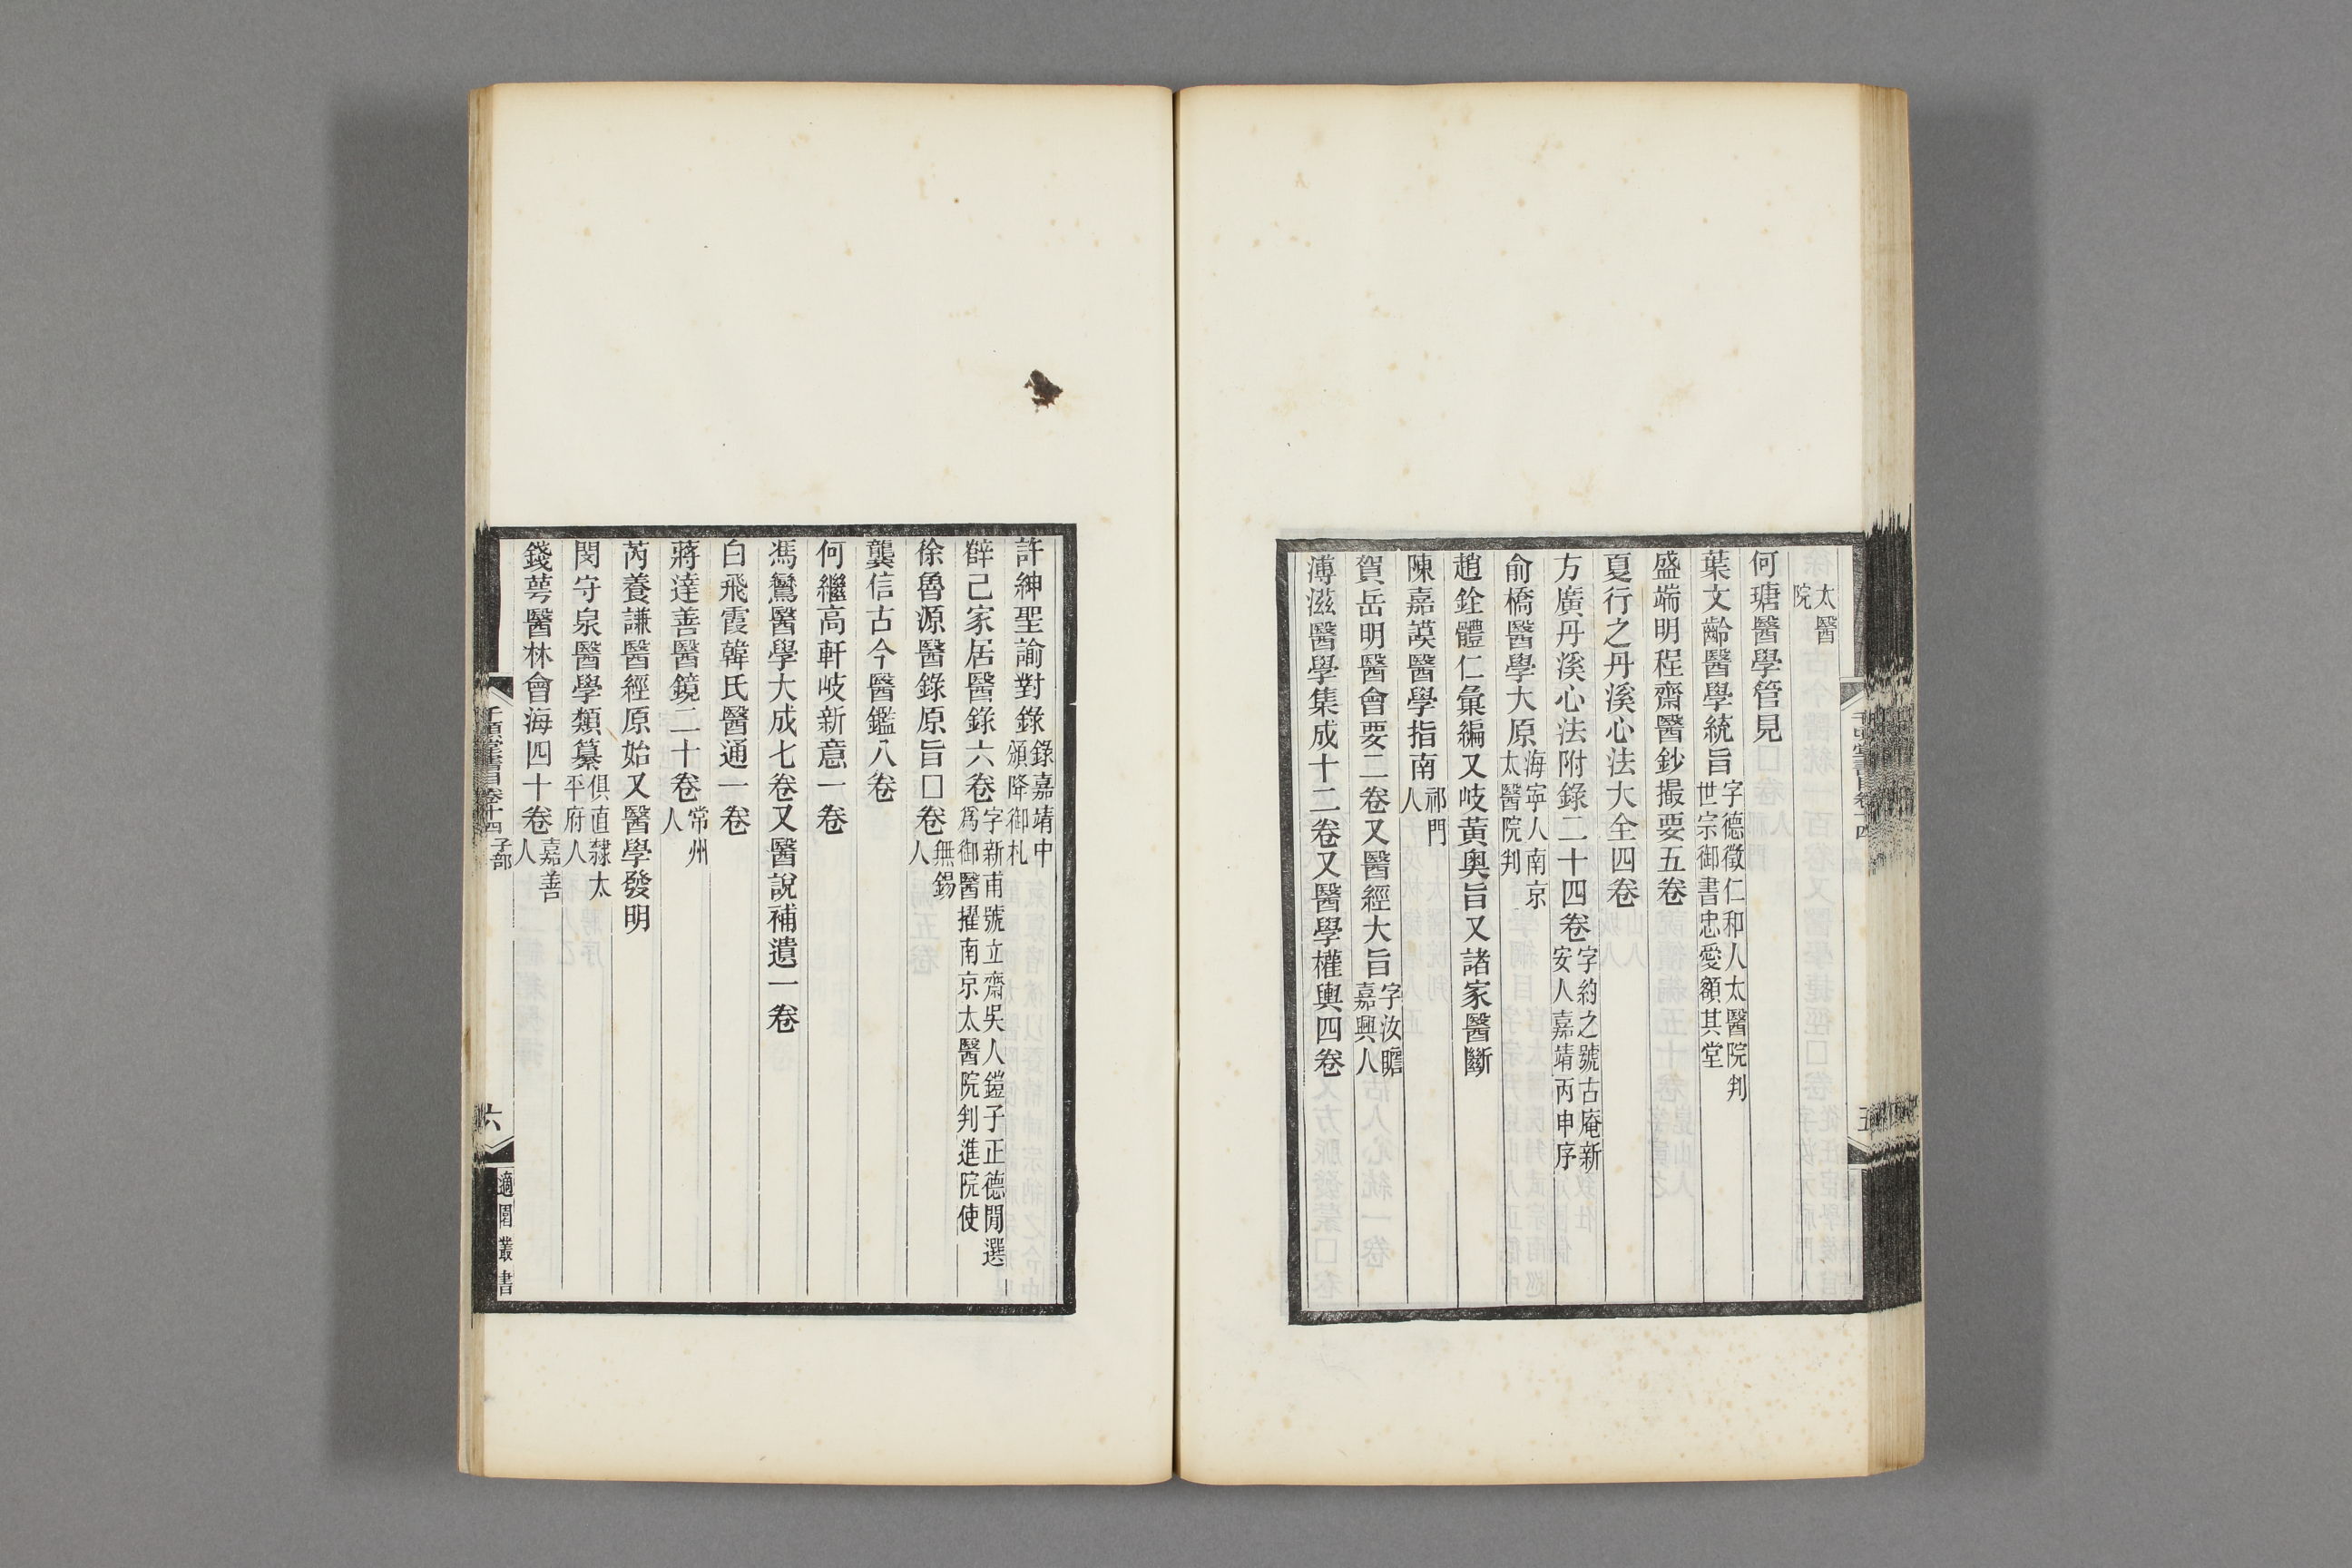 太醫
院
何瑭醫學管見
葉文齡醫學統旨字德徵仁和人太醫院判
世宗御書忠愛額其堂
盛端明程齋醫鈔撮要五卷
夏行之丹溪心法大全四卷
方廣丹溪心法附錄二十四卷字約之號古庵新
安人嘉靖丙申序
俞橋醫學大原海寧人南京
太醫院判
趙銓體仁彙編又岐黃奥旨又諸家醫斷
陳嘉謨醫學指南祁門
人
賀岳明醫會要二卷又醫經大旨字汝瞻
嘉興人
溥滋醫學集成十二卷又醫學權輿四卷
許紳聖諭對錄錄嘉靖中
頒降御札
薛己家居醫錄六卷字新甫號立齋吳人鎧子正德間選
爲御醫擢南京太醫院判進院使
徐魯源醫錄原旨□卷無錫
人
龔信古今醫鑑八卷
何繼高軒岐新意一卷
馮鸞醫學大成七卷又醫說補遺一卷
白飛霞韓氏醫通一卷
蔣達善醫鏡二十卷常州
人
芮養謙醫經原始又醫學發明
閔守泉醫學類纂俱直隸太
平府人
錢萼醫林會海四十卷嘉善
人
千頃堂書目卷十四 子部
六
適園叢書